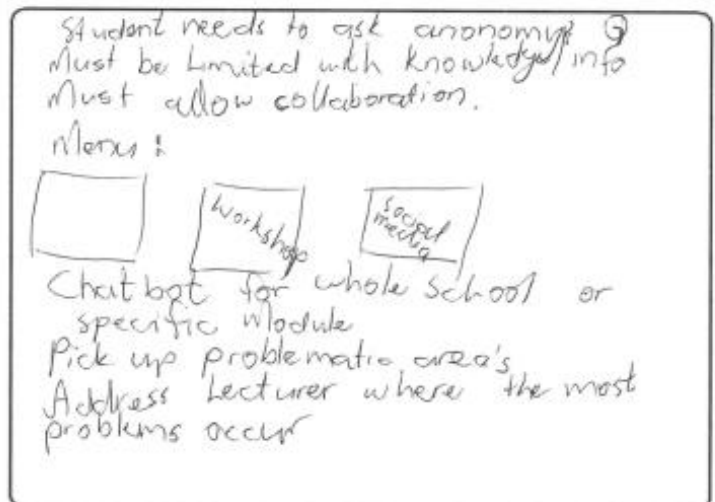 Student needs to ask anonomys Q
Must be Limited with knowledge/info
Must allow collaboration.
Menu:
Workshop
social
media
Chatbot for whole school or
specific Module
Pick up problematic area's
Address Lecturer where the most
problems occur